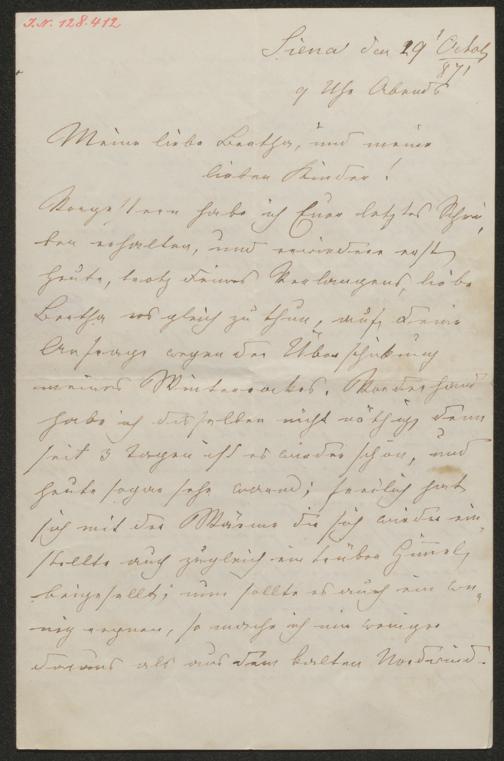 I.N. 128.412
Siena den 29' Octob
871
9 Uhr Abends
Meine liebe Bertha, und meine
lieben Kinder!
Vorgestern habe ich Euer letztes Schrei
ben erhalten, und erwiedere erst
heute, trotz deines Verlangens, liebe
Bertha es gleich zu thun, auf deine
Anfrage wegen der Überschickung
meines Winterrockes. Vorderhand
habe ich denselben nicht nöthig, denn
seit 3 Tagen ist es wieder schön, und
heute sogar sehr warm; freilich hat
sich mit der Wärme die sich wieder ein
stellte auch zugleich ein trüber Himmel
beigesellt; nun sollte es auch ein we
nig regnen, so mache ich mir weniger
daraus als aus dem kalten Nordwind.